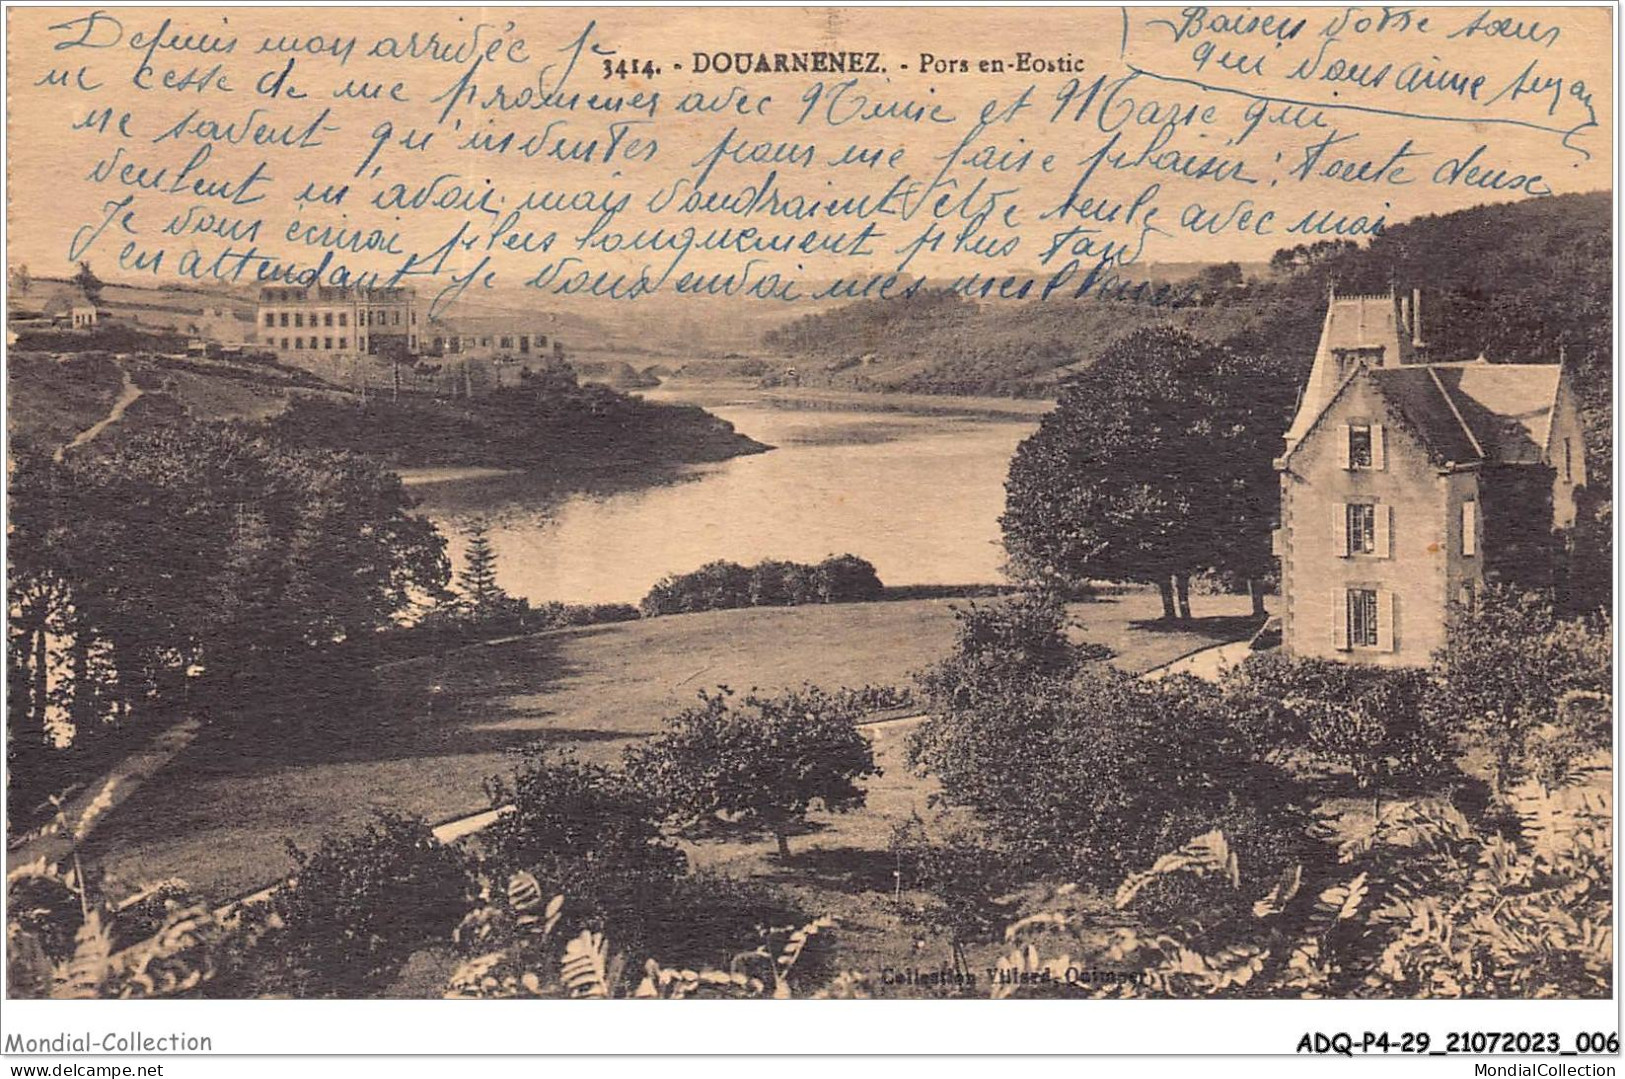 Depuis mon arrivée je
ne cesse de me promener avec Ninie et Marie qui
ne savent qu'inventer pour me faire plaisir. Toute deuse
veulent m'avoir mais voudraient être seule avec moi
Je vous écrirai plus longuement plus tard
en attendant je vous envoi mes meilleures
Baisers votre sœur
qui vous aime Suzan
3414. - DOUARNENEZ. - Pors en-Eostic
Collection Villard, Quimper
Mondial-Collection
ADQ-P4-29_21072023_006
www.delcampe.net
MondialCollection